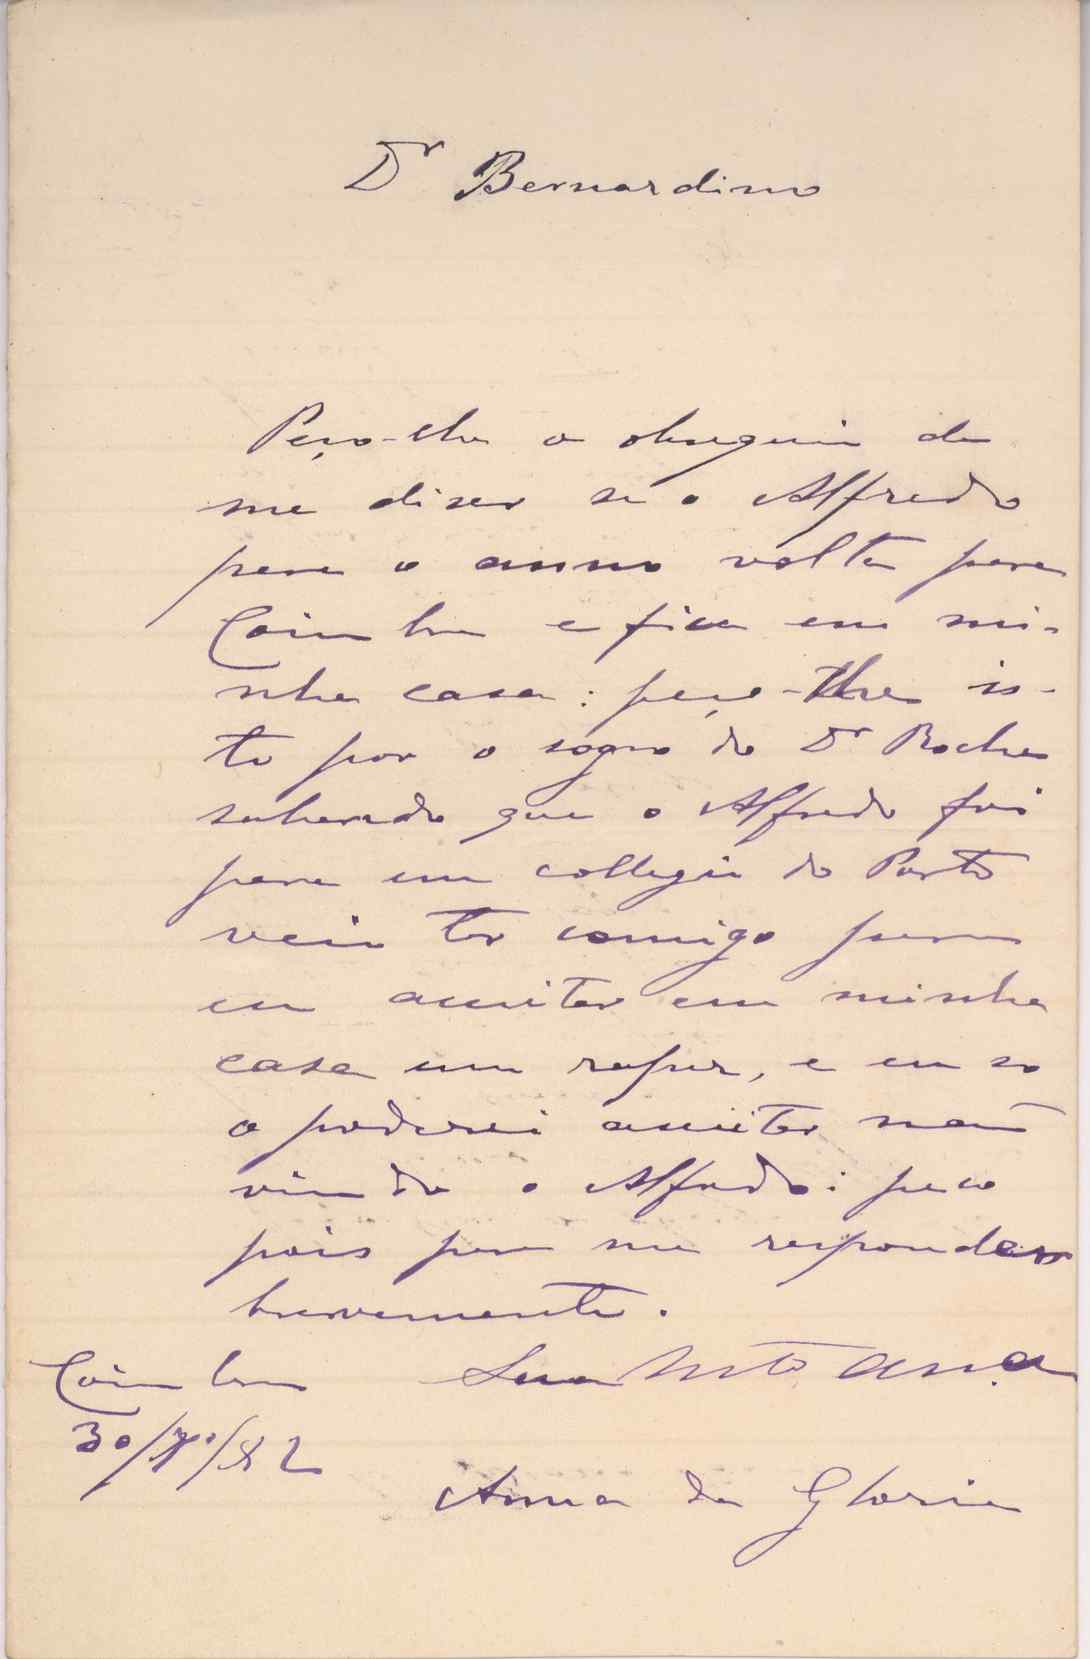 Dr Bernardino
Peço-lhe o obsequio de
me diser se o Alfredo
para o anno volta para
Coimbra e fica em mi-
nha casa: peço-lhe is-
to por o sogro do Dr Rocha
sabendo que o Alfredo foi
para um collegio do Porto
veio ter comigo para
eu acceitar em minha
casa um rapaz, e eu so
o poderei acceitar não
vindo o Alfredo: peço
pois para me responder
brevemente.
Coimbra Sua Mto am.a
30/ /82
Anna da Gloria